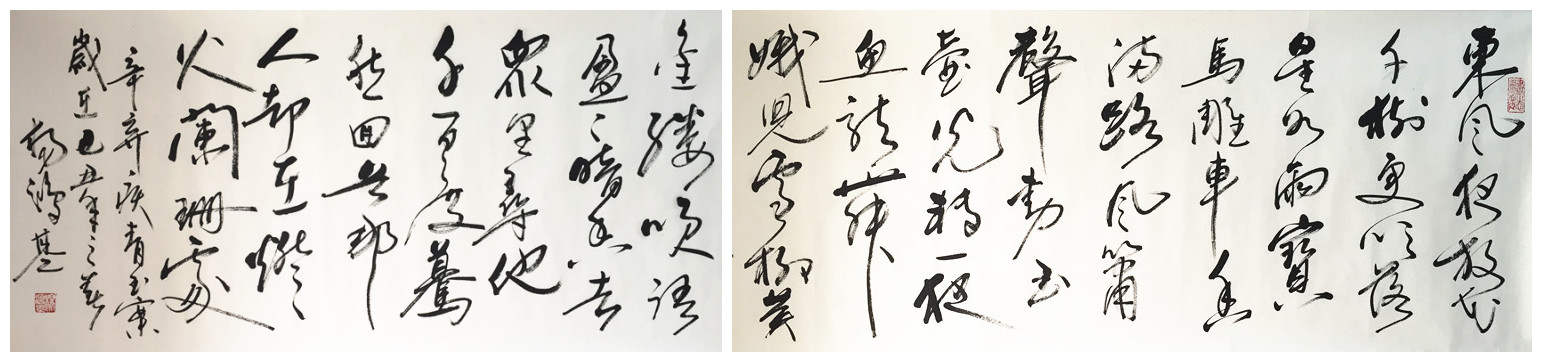 東風夜放花
千樹更吹落
星如雨寶
馬雕車香
滿路風簫
聲動玉
壺光轉一夜
魚龍舞
娥兒雪柳黃
金縷笑語
盈〻暗香去
衆里尋他
千百度驀
然回首那
人却在燈
火蘭珊處
辛弃疾青玉案
歲在己丑年之春
楊鴻基